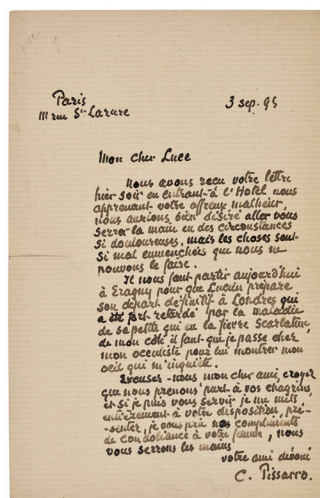 Paris
111 rue St Lazare
3 sep. 95
Mon cher Luce
Nous avons reçu votre lettre
hier soir en entrant à l'Hotel nous
apprenant votre affreux malheur,
nous aurions bien désiré aller vous
serrer la main en des circonstances
si douloureuses, mais les choses sont
si mal emmenchées que nous ne
pouvons le faire.
Il nous faut partir aujourd'hui
à Eragny pour que Lucien prepare
son départ définitif à Londres qui
a été fort retardé par la maladie
de sa petite qui a la fievre Scarlatine,
de mon côté il faut que je passe chez
mon oculiste pour lui montrer mon
oeil qui m'inquiète.
Excusez-nous mon cher ami, croyez
que nous prenons part à vos chagrins
et si je puis vous servir je me mets
entièrement à votre disposition, pré-
senter, je vous prie nos compliments
de condoléance à votre femme, nous
vous serrons les mains
votre ami dévoué
C. Pissarro.